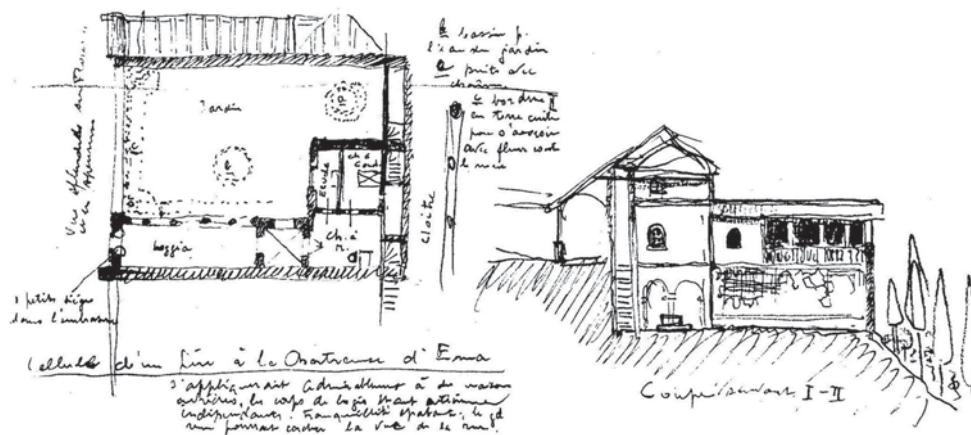 b bassin p.
l'eau du jardin
a puits avec
chaîne
c bordure
en terre cuite
pour s'asseoir
avec fleurs contre
le mur
II
Vue splendide sur Florence
et les Apennins
Jardin
Ecude
ch. à
loggia
ch. à
m.
cloître
2 petits sièges
dans l'embrasure
Cellule d'un Père à la Chartreuse d'Ema
s'appliquerait admirablement à des maisons
ouvrières, les corps de logis étant entièrement
indépendants. Tranquillité épatante; le gd
mur pourrait cacher la vue de la rue.
Coupe suivant I-II